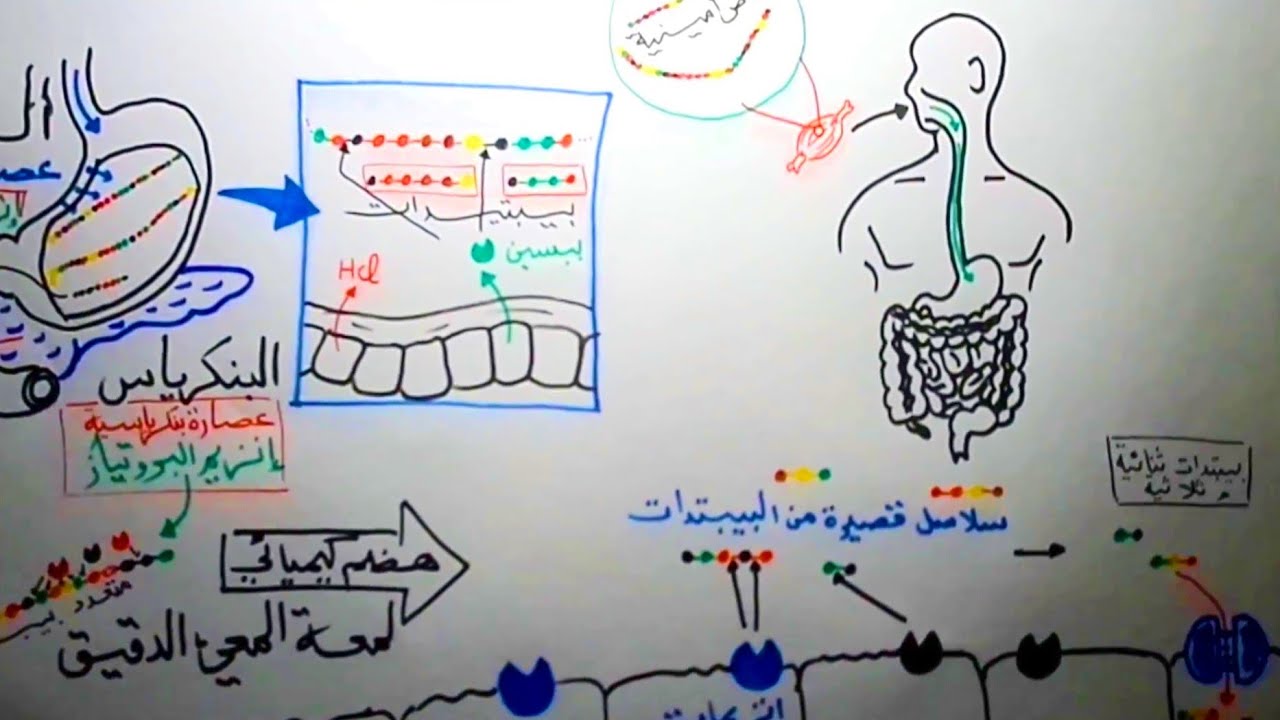 ال
عصا
ض أمينية
بيبتيدات
ببسين
HCl
البنكرياس
عصارة بنكرياسية
إنزيم البروتياز
متعدد بيب
هضم كيميائي
لمعة المعي الدقيق
سلاسل قصيرة من البيبتدات
بيبتدات ثنائية
و ثلاثية